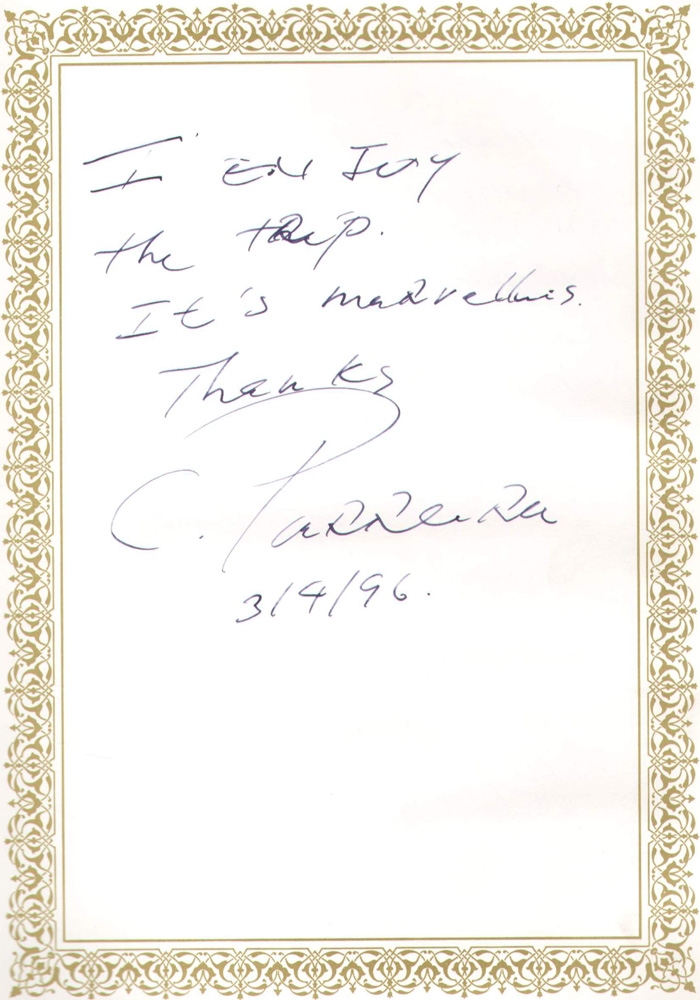 I ENJOY
the tRip.
It's maRvellous.
Thanks
C. PaRReiRa
3/4/96.